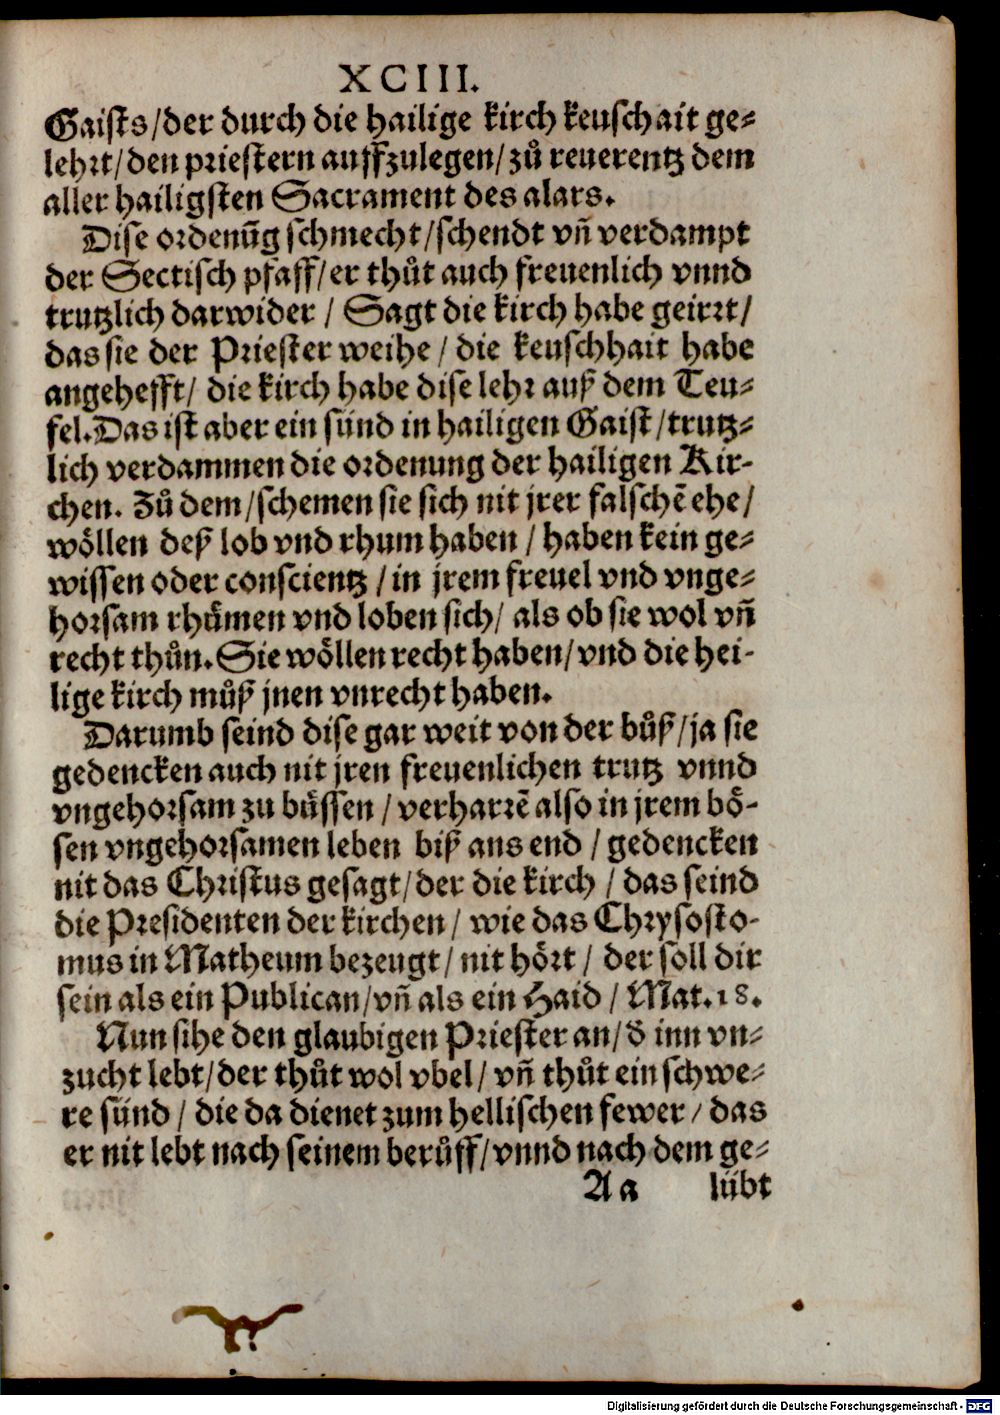 XCIII.
Gaists/der durch die hailige kirch keuschait ge⸗
lehrt/den priestern auffzulegen/zů reuerentz dem
aller hailigsten Sacrament des alars.
Dise ordenūg schmecht/schendt vñ verdampt
der Sectisch pfaff/er thůt auch freuenlich vnnd
trutzlich darwider / Sagt die kirch habe geirrt/
das sie der Priester weihe / die keuschhait habe
angehefft/ die kirch habe dise lehr auß dem Teu⸗
fel.Das ist aber ein sünd in hailigen Gaist/trutz⸗
lich verdammen die ordenung der hailigen Kir-
chen. Zů dem/schemen sie sich nit jrer falschē ehe/
wöllen deß lob vnd rhum haben / haben kein ge⸗
wissen oder conscientz / in jrem freuel vnd vnge⸗
horsam rhümen vnd loben sich/ als ob sie wol vñ
recht thůn.Sie wöllen recht haben/vnd die hei-
lige kirch můß jnen vnrecht haben.
Darumb seind dise gar weit von der bůß/ja sie
gedencken auch nit jren freuenlichen trutz vnnd
vngehorsam zu büssen / verharrē also in jrem bö-
sen vngehorsamen leben biß ans end / gedencken
nit das Christus gesagt/der die kirch / das seind
die Presidenten der kirchen / wie das Chrysosto-
mus in Matheum bezeugt/ nit hört / der soll dir
sein als ein Publican/vñ als ein Haid / Mat.18.
Nun sihe den glaubigen Priester an/ď inn vn⸗
zucht lebt/der thůt wol vbel/ vñ thůt ein schwe⸗
re sünd / die da dienet zum hellischen fewer / das
er nit lebt nach seinem berůff/vnnd nach dem ge⸗
Aa lübt
Digitalisierung gefördert durch die Deutsche Forschungsgemeinschaft - DFG